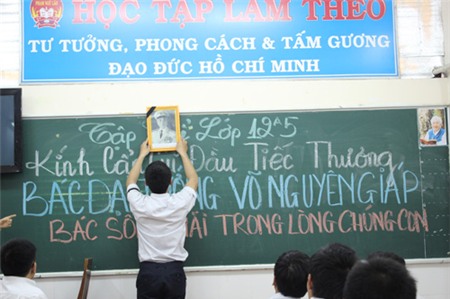 HỌC TẬP LÀM THEO
TƯ TƯỞNG, PHONG CÁCH & TẤM GƯƠNG
ĐẠO ĐỨC HỒ CHÍ MINH
Tập Lớp 12A5
Kính Cẩn Đầu Tiếc Thương
BÁC ĐẠI VÕ NGUYÊN GIÁP
BÁC SỐNG TRONG LÒNG CHÚNG CON